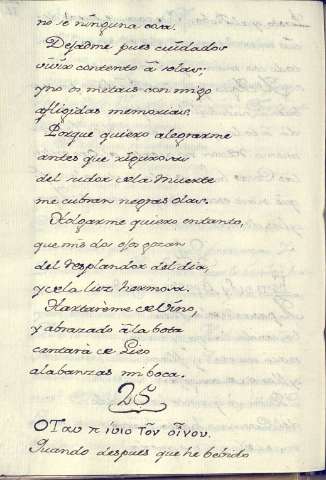 no se ninguna cosa.
Dejadme pues cuidados
vivir contento à solas;
y no os metais con migo
afligidas memorias.
Porque quiero alegrarme
antes que rigurosas
del rudor de la Muerte
me cubran negras olas.
Holgarme quiero entanto,
que mis dos ojos gozan
del Resplandor del dia,
y de la luz hermosa.
Hartarème de Vino,
y abrazado à la bota
cantarà de Liso
alabanzas mi boca.
25
Ὅταν πίνιο τὸν οἶνον.
Quando despues que he bebido